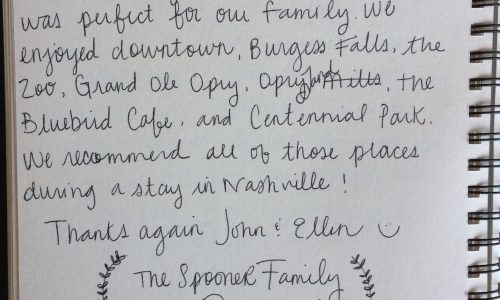 was perfect for our family. We
enjoyed downtown, Burgess Falls, the
Zoo, Grand Ole Opry, Opryland Mills, the
Bluebird Cafe, and Centennial Park.
We recommend all of those places
during a stay in Nashville!
Thanks again John & Ellen
The Spooner Family